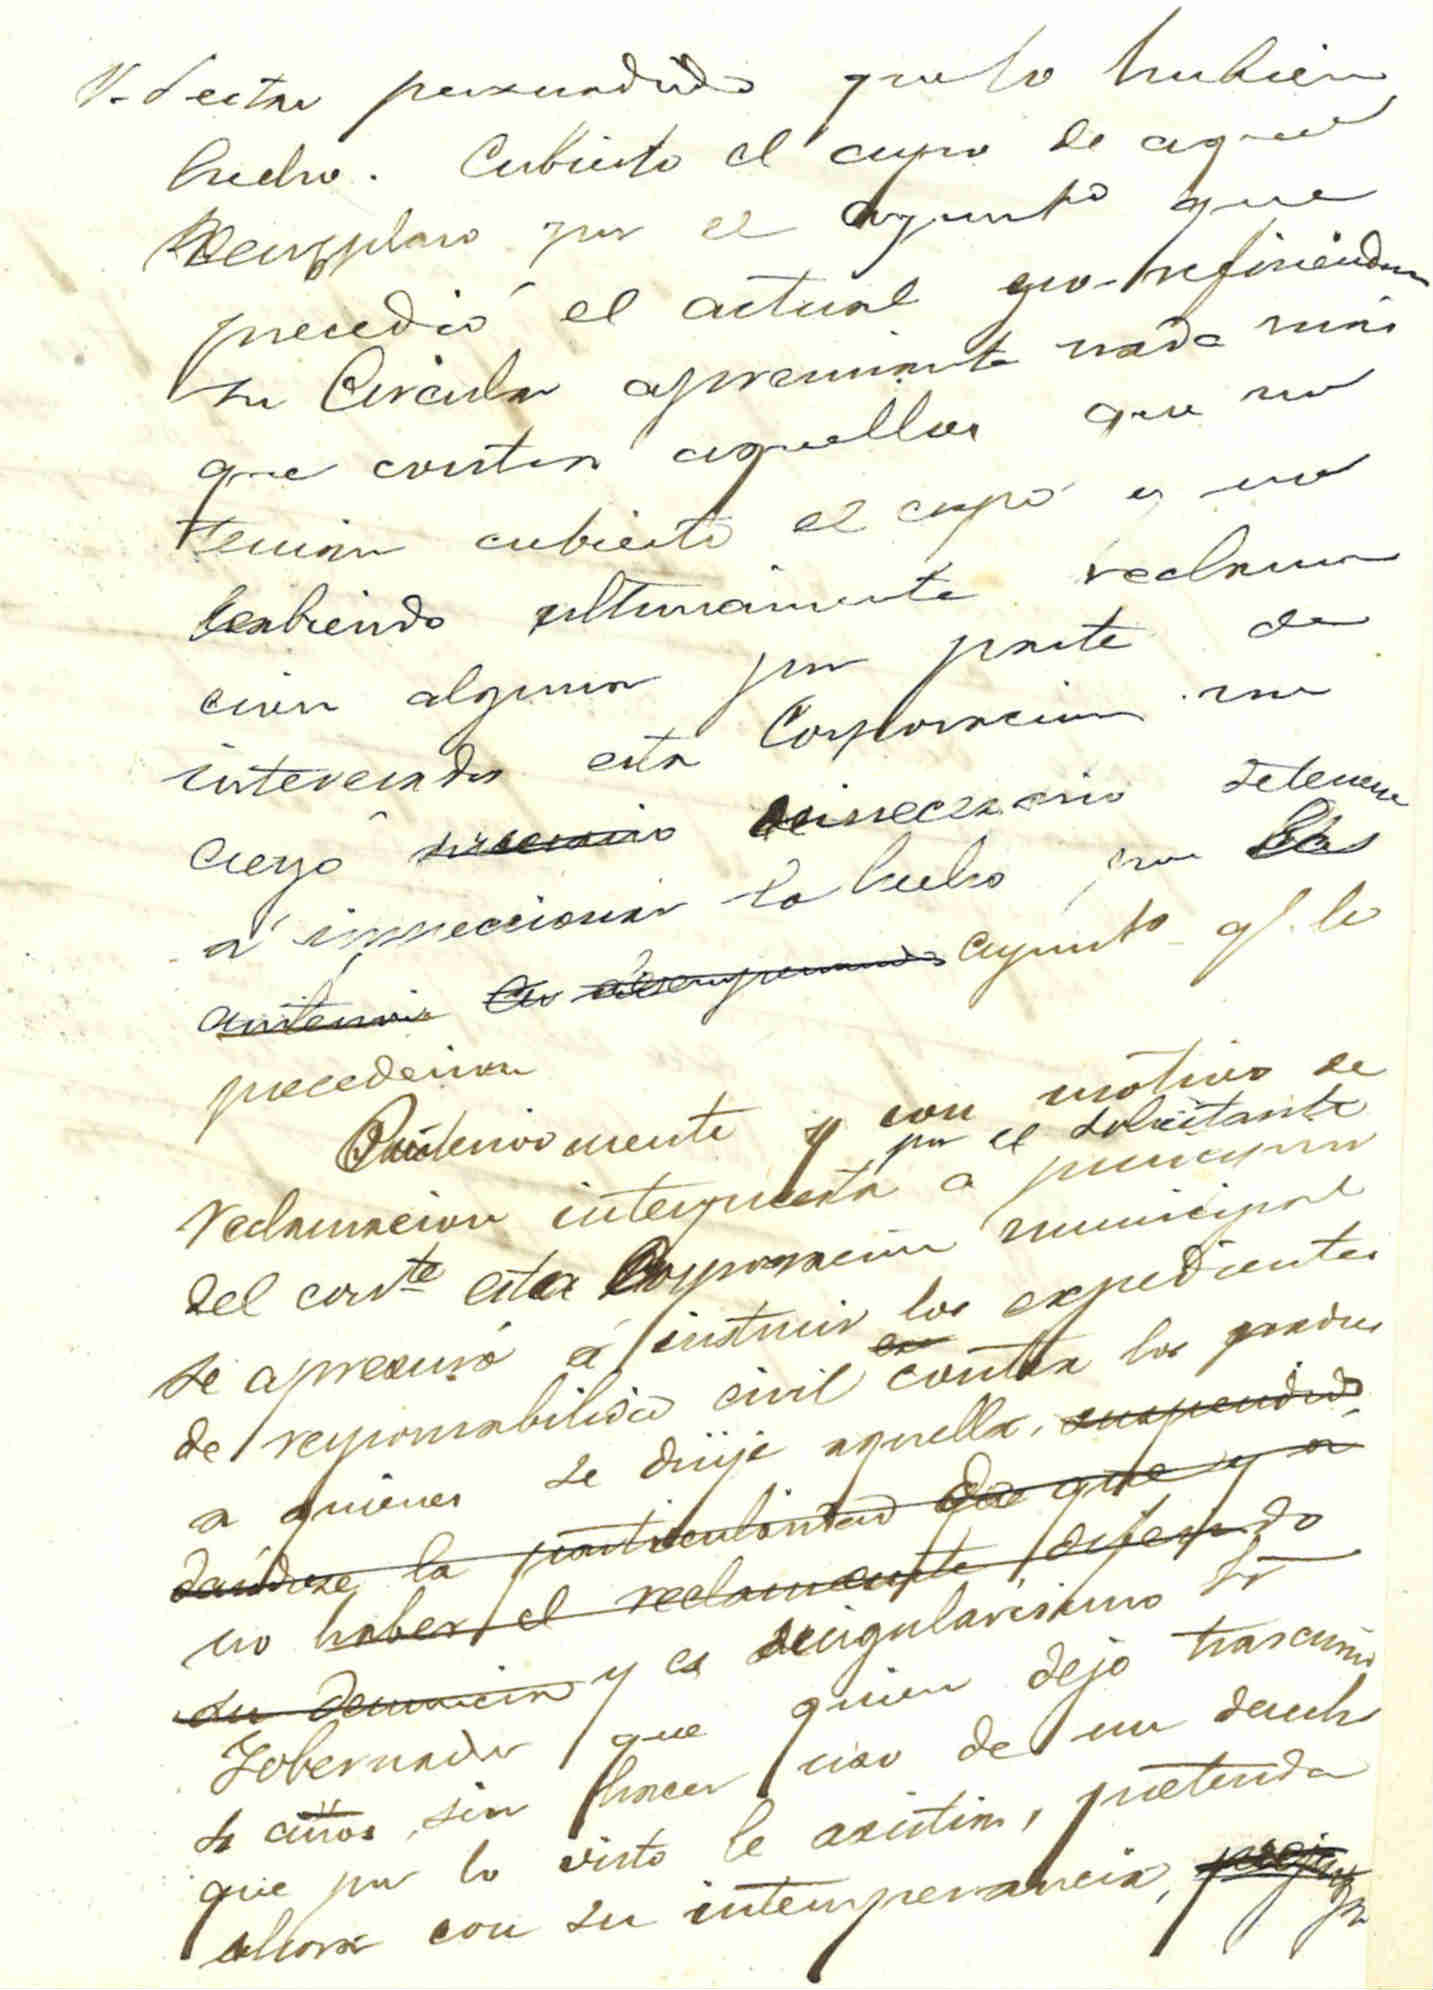 V. d estar persuadido que lo hubieran
hecho. Cubierto el cupo de aquel
Reemplazo por el ayuntº que
precedió el actual y refiriendose
su Circular apremiante nada más
que contra aquellos que no
tenian cubierto el cupo y no
habiendo ultimamente reclama
cion alguna por parte de
interesados esta Corporacion no
creyó necesario innecesario detenerse
a inspeccionar lo hecho por los
anterior ayuntº q. le
precedieron
Posteriormente y con motivo de
por el solicitante
reclamacion interpuesta a principios
del corrte esta Corporacion municipal
se apresuró á instruir los expedientes
de responsabilidad civil contra los padres
a quienes se dirije aquella, suspendido
dandose la particularidad de que ya
no haber el reclamante deferido
su denuncia y es singularisimo Sr
Gobernador que quien dejo trascurrir
años, sin hacer uso de un derecho
que por lo visto le asistia, pretenda
ahora con su intemperancia,